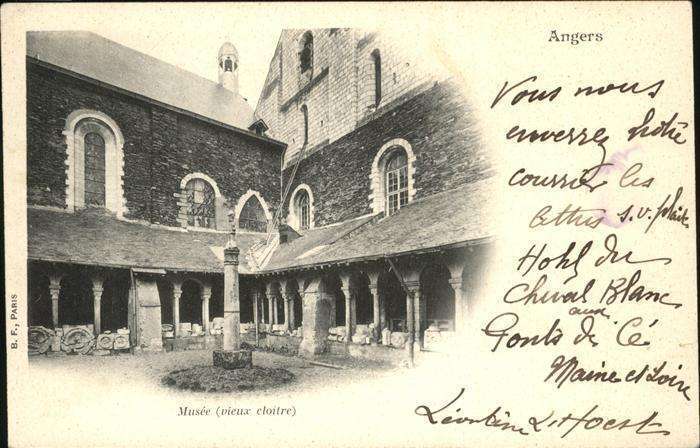 Angers
Vous nous
enverrez notre
courrier les
lettres s. v. plait
Hotel du
Cheval Blanc
aux
Ponts de Cé
Maine et Loire
Léontine L'Hoest
B. F., PARIS
Musée (vieux cloître)